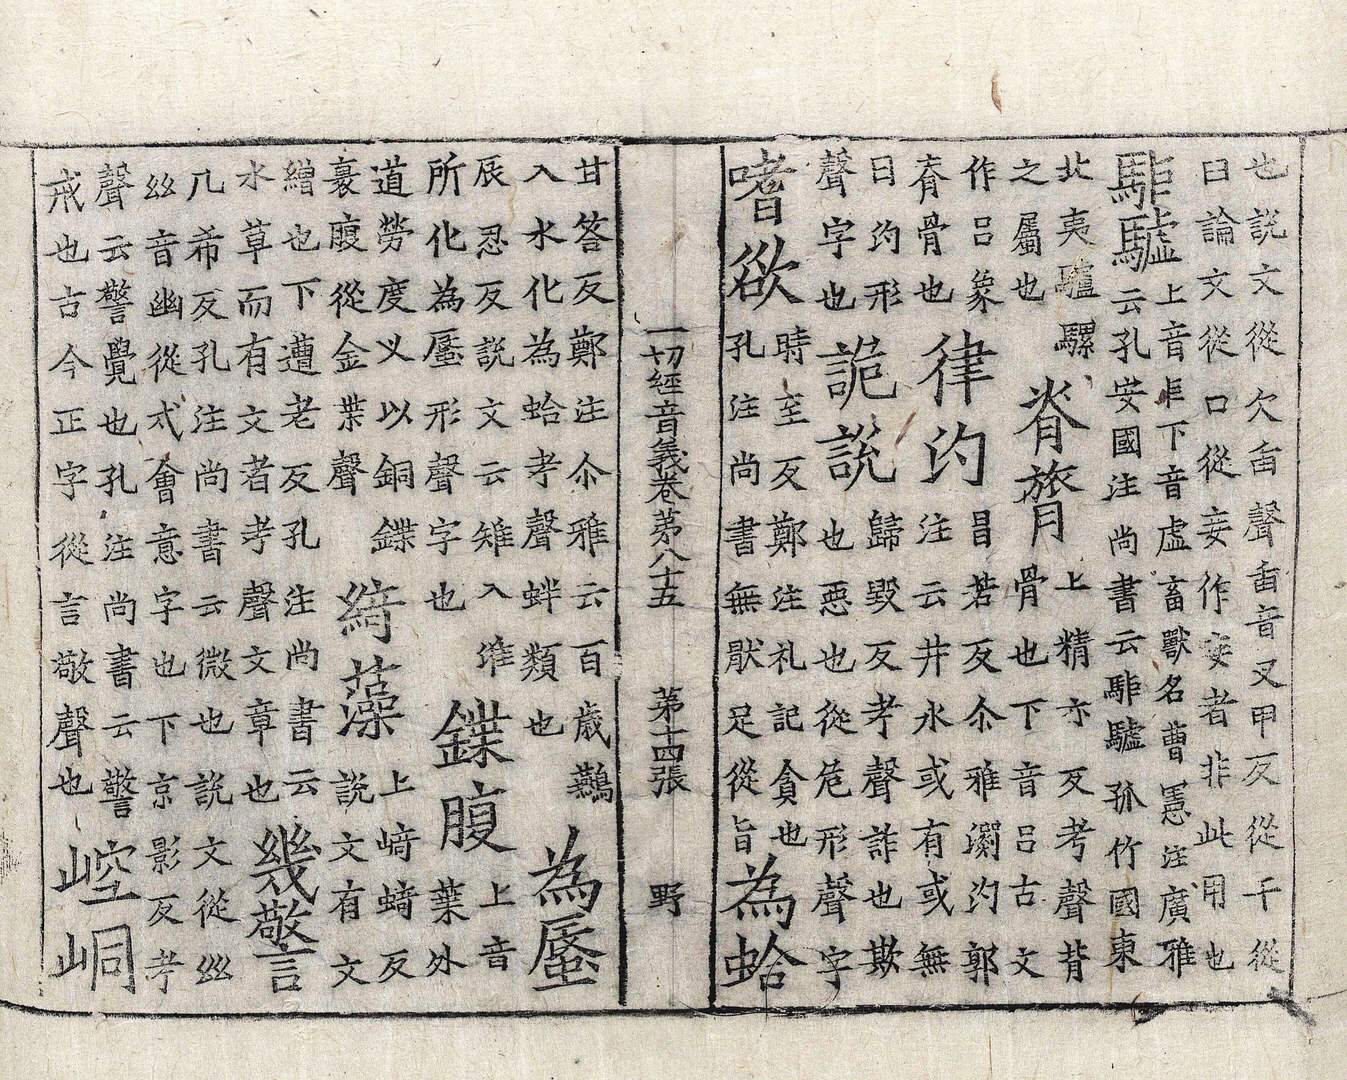 也說文從欠臿聲臿音叉甲反從千從
臼論文從口從妾作妾者非此用也
駏驉上音巨下音虛畜獸名曹憲注廣雅
云孔安國注尚書云駏驉孤竹國東
北夷驢騾
之屬也
脊膂上精亦反考聲背
骨也下音呂古文
作呂象
脊骨也
律汋昌若反尒雅瀱汋郭
注云井水或有或無
曰汋形
聲字也
詭說歸毀反考聲詐也欺
也惡也從危形聲字
嗜欲時至反鄭注礼記貪也
孔注尚書無猒足從旨
為蛤
一切經音義卷第八十五
第十四張
野
甘答反鄭注尒雅云百歲鷰
入水化為蛤考聲蚌類也
為蜃上音
辰忍反說文云雉入淮
所化為蜃形聲字也
鍱腹葉外
道勞度义以銅鍱
裹腹從金枼聲
綺藻上崎𧫡反
說文有文
繒也下遭老反孔注尚書云
水草而有文者考聲文章也
幾警
几希反孔注尚書云微也說文從𢆶
𢆶音幽從戍會意字也下京影反考
聲云警覺也孔注尚書云警
戒也古今正字從言敬聲也
崆峒